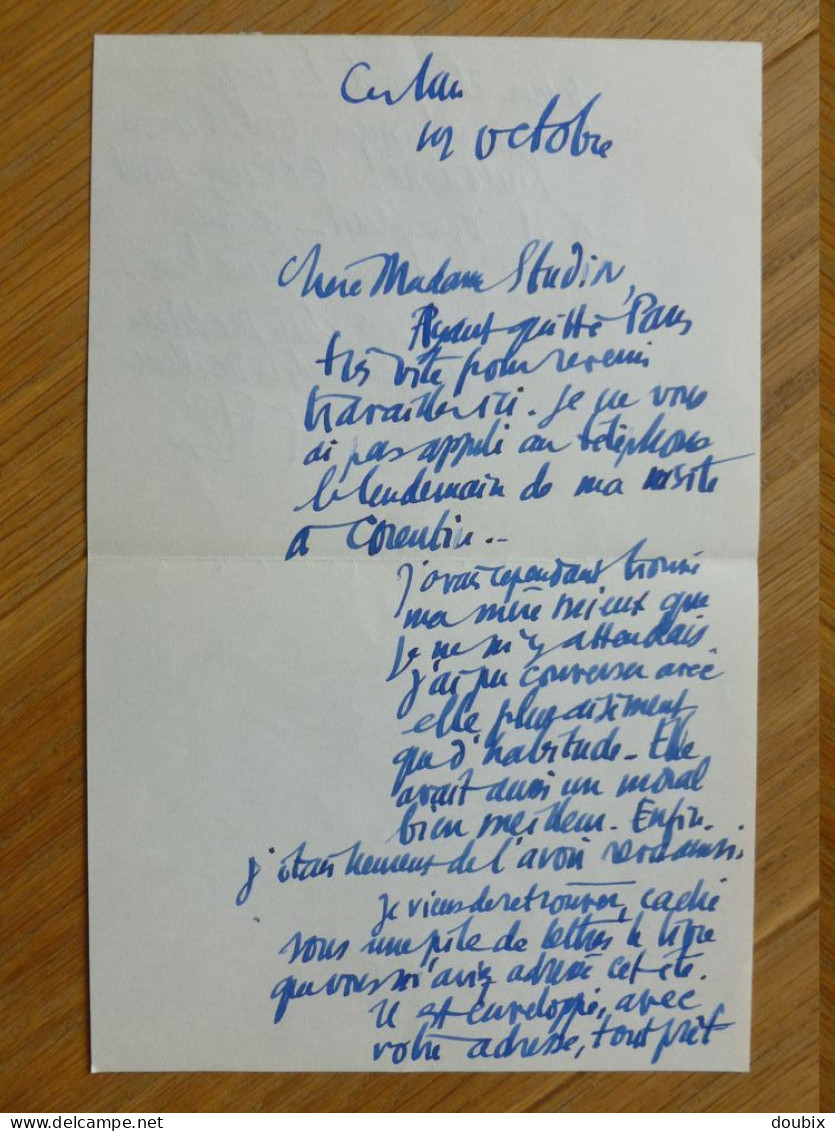 octobre
Chère Madame Studin,
Ayant quitté Paris
très vite pour revenir
travailler ici. Je ne vous
ai pas appelé au téléphone
le lendemain de ma visite
à Corentin..
J'avais cependant trouvé
ma mère mieux que
je ne m'y attendais.
J'ai pu converser avec
elle plus aisément
que d'habitude. Elle
avait aussi un moral
bien meilleur. Enfin.
j'étais heureux de l'avoir vue ainsi.
Je viens de retrouver, caché
sous une pile de lettres le livre
que vous m'aviez adressé cet été.
Il est enveloppé, avec
votre adresse, tout prêt
doubix